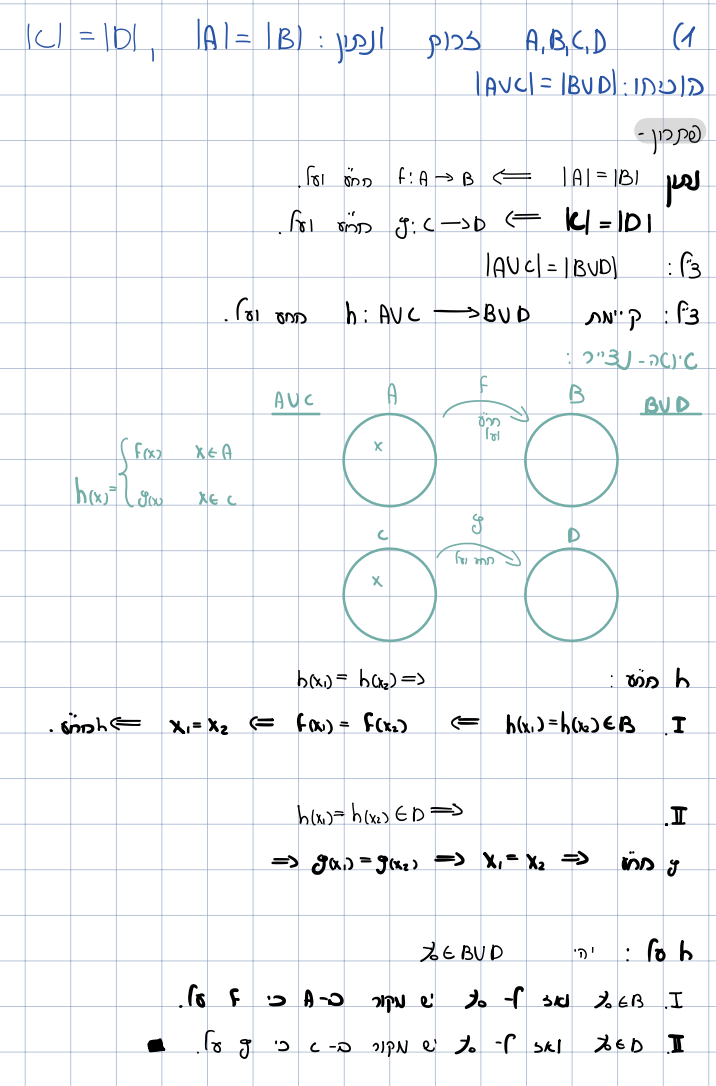 1) A,B,C,D זרות ונתון: |A|=|B| , |C|=|D|
הוכיחו: |A∪C|=|B∪D|
פתרון-
נתון |A|=|B| ⟸ f:A→B חח״ע ועל.
|C|=|D| ⟸ g:C→D חח״ע ועל.
צ״ל: |A∪C|=|B∪D|
צ״ל: קיימת h: A∪C ⟶ B∪D חחע ועל.
טיוטה- נצייר:
A∪C A f B B∪D
חח״ע ועל
x
h(x)= { f(x) x∈A
g(x) x∈C
C g D
חחע ועל
x
h חח״ע: h(x₁)=h(x₂)⟹
I. h(x₁)=h(x₂)∈B ⟸ f(x₁)=f(x₂) ⟸ x₁=x₂ ⟸ h חח״ע.
II. h(x₁)=h(x₂)∈D ⟹
g חח״ע ⟹ g(x₁)=g(x₂) ⟹ x₁=x₂ ⟹
h על: יהי ∈B∪D
I. ∈B ואז ל- יש מקור ב-A כי f על.
II ∈D ואז ל- יש מקור ב-C כי g על. ■